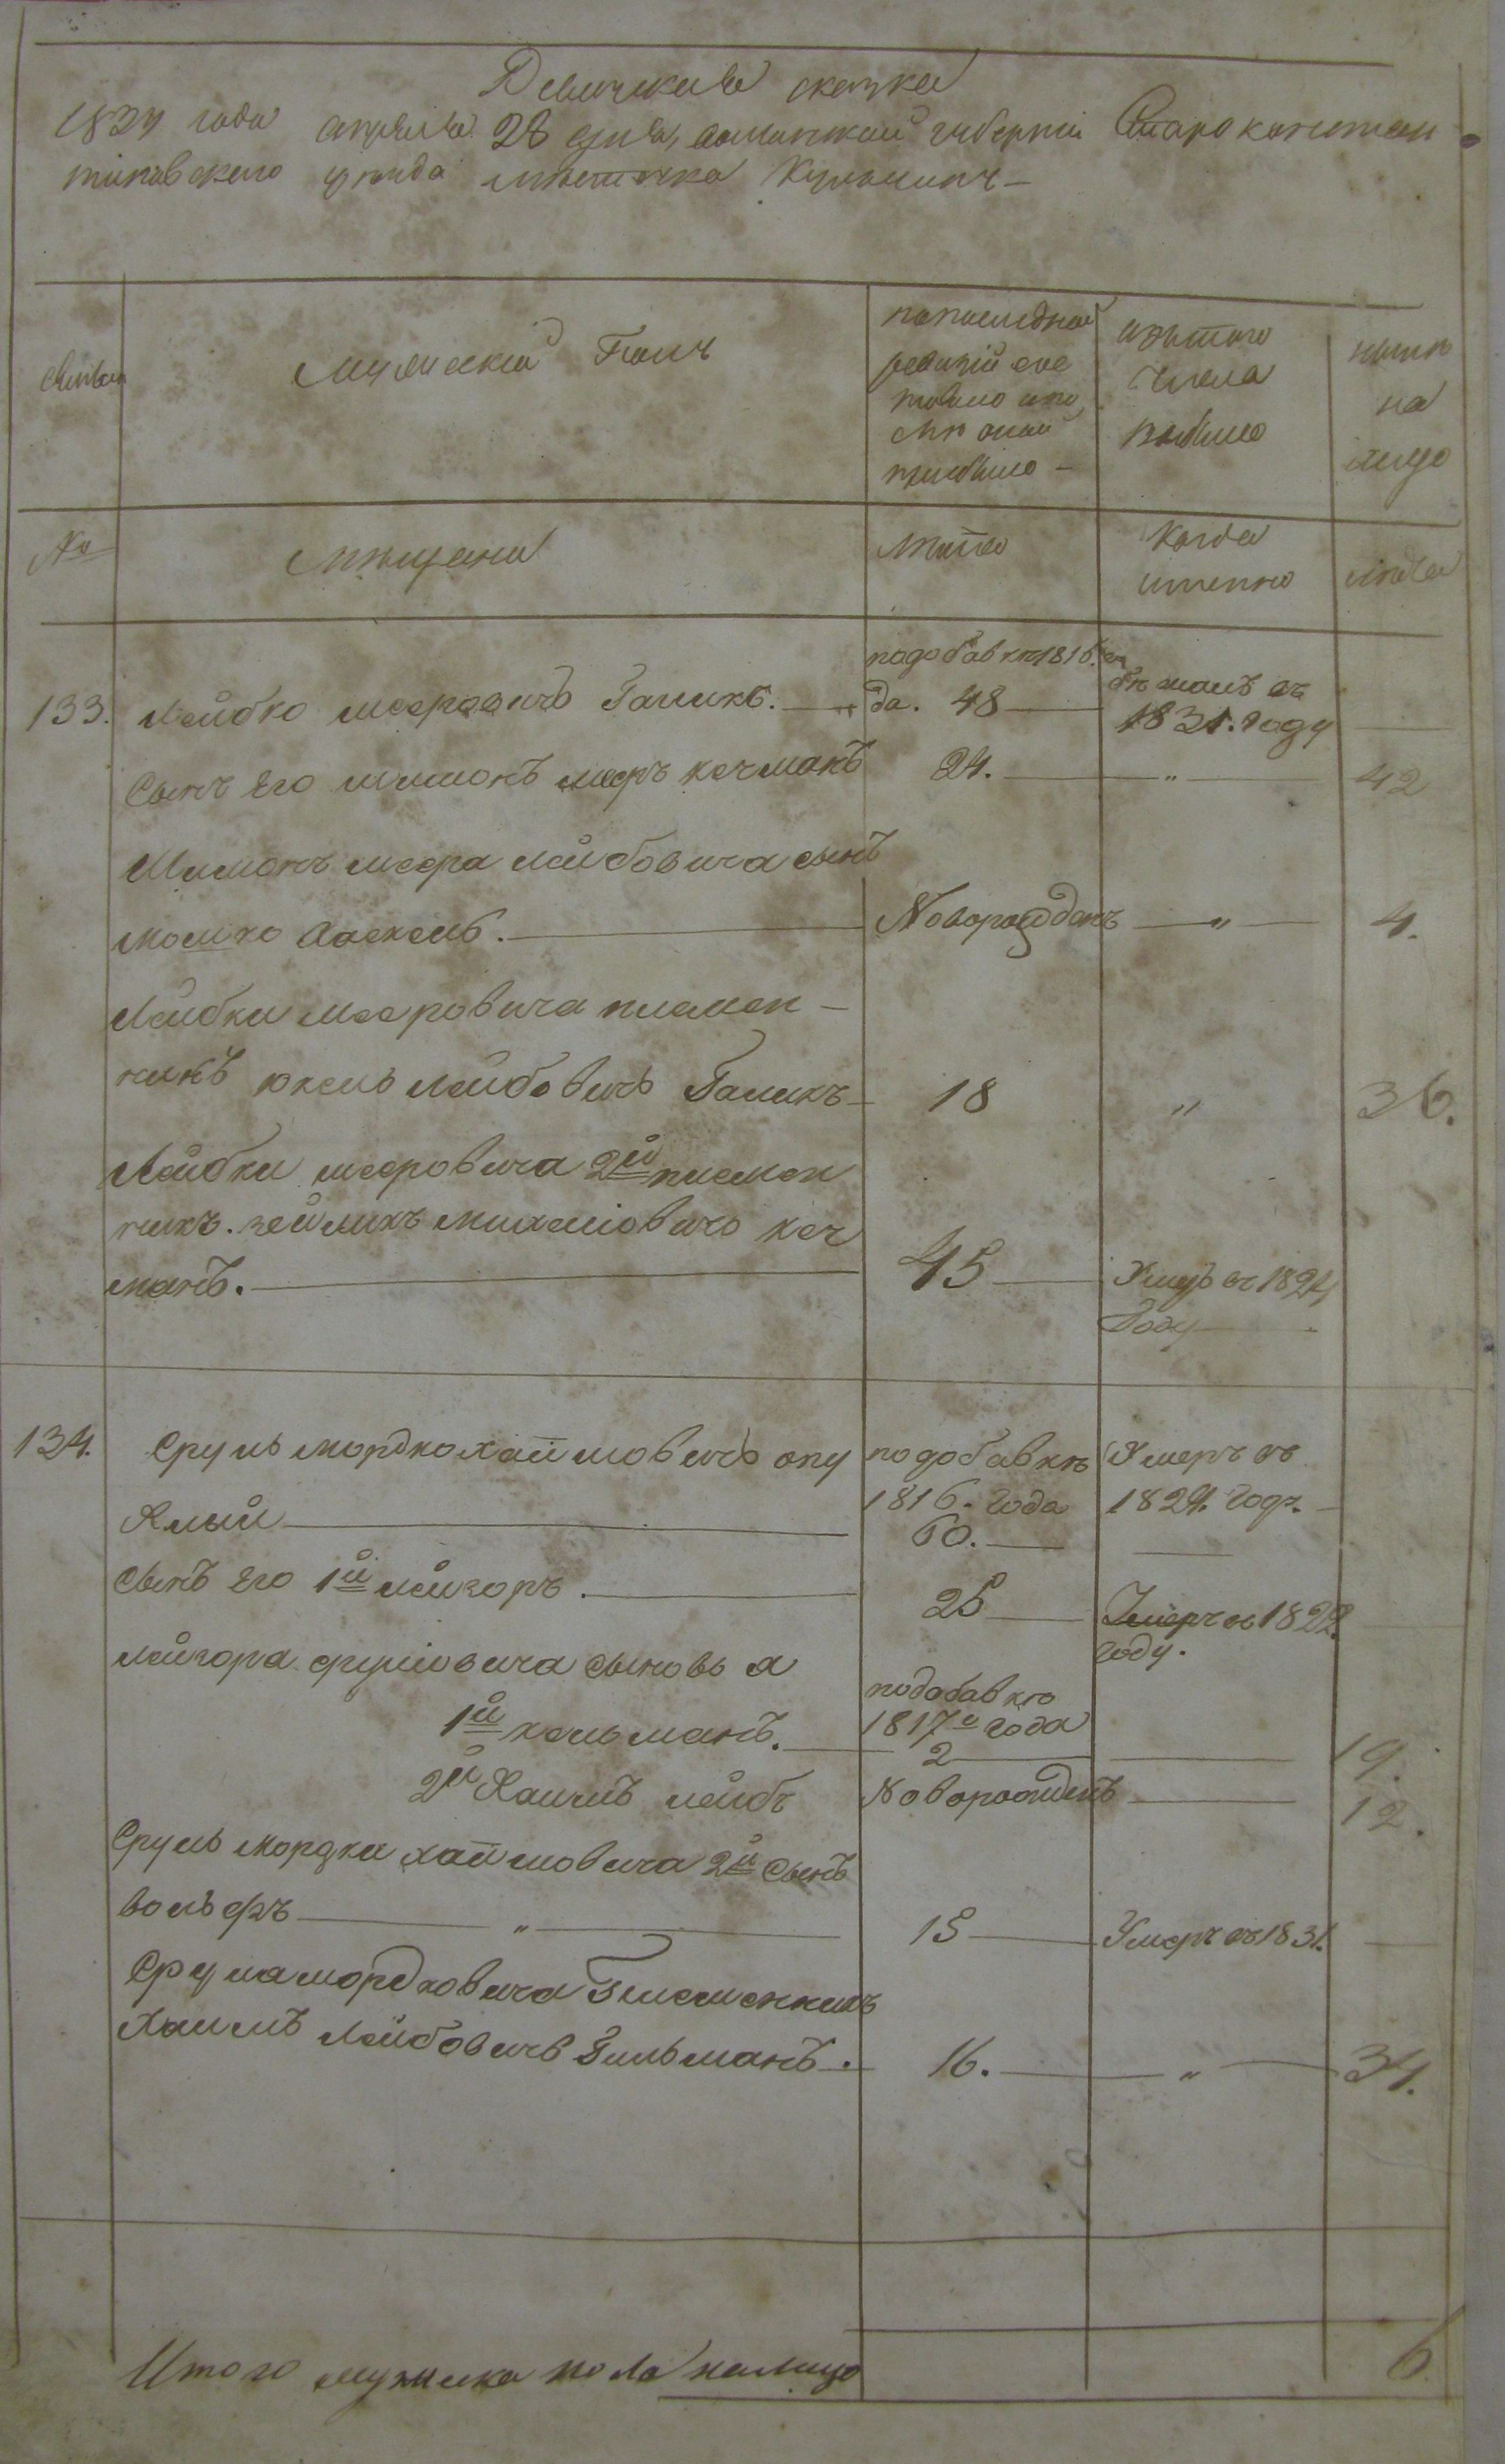 Ревижская сказка
1834 года апреля 28 дня, волынской губернiи Староконстан
тиновскаго уезда местечка Кульчинъ
Семьи
Мужескiй Полъ
попоследней
ревизiи сос
тояло ипо
сле оной
прибыло
изътого
числа
выбыло
ныне
на
лицо
№
мещане
лета
Когда
именно
лета
133. Лейбко мееровичъ Галикъ.
подобавке 1816. го
да. 48
бежалъ въ
1831. году
Сынъ Его шимонъ мееръ кечманъ 24. 42
Шимонъ меера лейбовича сынъ
мошко Новорожденъ 4.
Лейбки мееровича племен
никъ юкель лейбовичъ Галикъ 18 36.
Лейбки мееровича 2й племен
никъ. зейликъ михелiовичъ кеч
манъ. 45 Умеръ въ 1824
Году
134. Сруль мордкохаймовичъ опу
Ялый
подобавке
1816. года
60.
Умеръ въ
1824. году.
Сынъ Его 1й лейзоръ. 25 Умеръ въ 1822.
году.
лейзора срулiовича сыновья
1й кельманъ.
подобавке
1817го года
2 19.
2й Хаимъ лейбъ Новорожденъ 12.
Сруль мордки хаймовича 2й сынъ
вольфъ 15 Умеръ въ 1831.
Сруля мордковича племенникъ
Хаимъ Лейбовичъ Гильманъ. 16. 34.
Итого мужска пола налицо 6